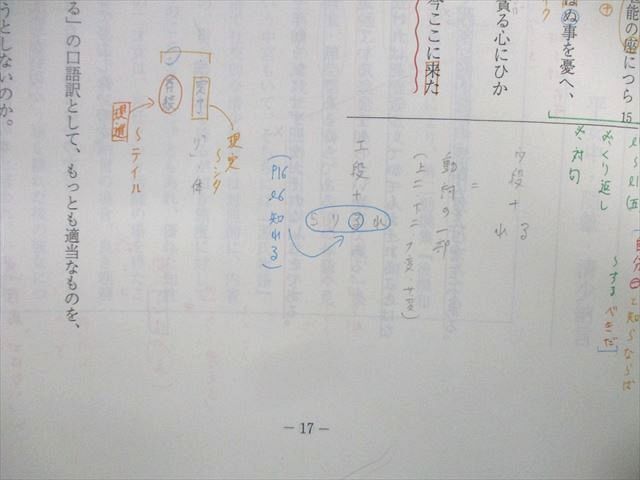 能の座につら
15
ぬ事を憂へ、
貪る心にひか
今ここに来た
l6〜l1(五
くり返し
対句
自分
と知らならば
〜するべきだ]
ウ段+る
れ
=
動詞の一部
(上二・下二・カ変・サ変)
エ段+
らりるれ
(P16
l6
知れる)
完了
〜シタ
「り」
体
存続
〜テイル
る」の口語訳として、もっとも適当なものを、
うとしないのか。
− 17 −